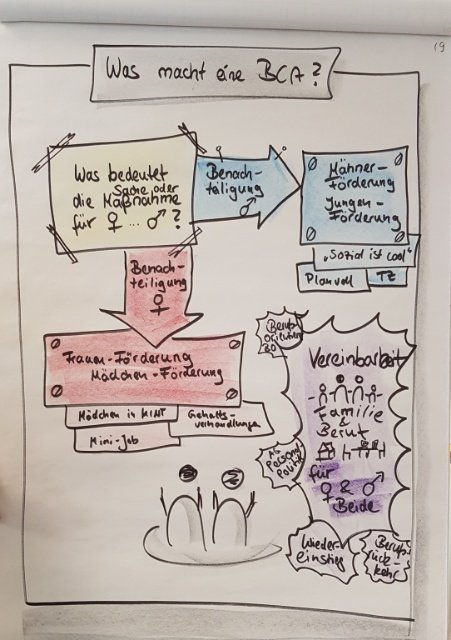 19
Was macht eine BCA?
Was bedeutet
Sache oder
die Maßnahme
für ♀ ... ♂?
Benach-
teiligung
♂
Männer-
förderung
Jungen-
Förderung
„Sozial ist cool“
Planvoll
TZ
Benach-
teiligung
♀
Frauen-Förderung
Mädchen-Förderung
Mädchen in MINT
Gehalts-
verhandlungen
Mini-Job
Berufs
Orientierung
BO
Vereinbarkeit
Familie
&
Beruf
für
♀ & ♂
Beide
AG
Personal
Politik
Wieder-
einstieg
Berufs
rück-
kehr